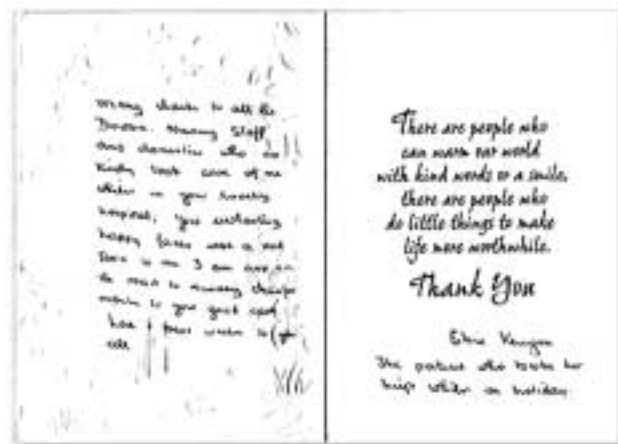 many thanks to all the
Doctors. Nursing Staff
and domestics who so
kindly took care of me
whilst in your
hospital, your
happy faces was a
I am
the road to recovery
to you
love & best wishes to you
all
There are people who
can warm our world
with kind words or a smile,
there are people who
do little things to make
life more worthwhile.
Thank You
Elsie
The patient who broke her
hip whilst on holiday